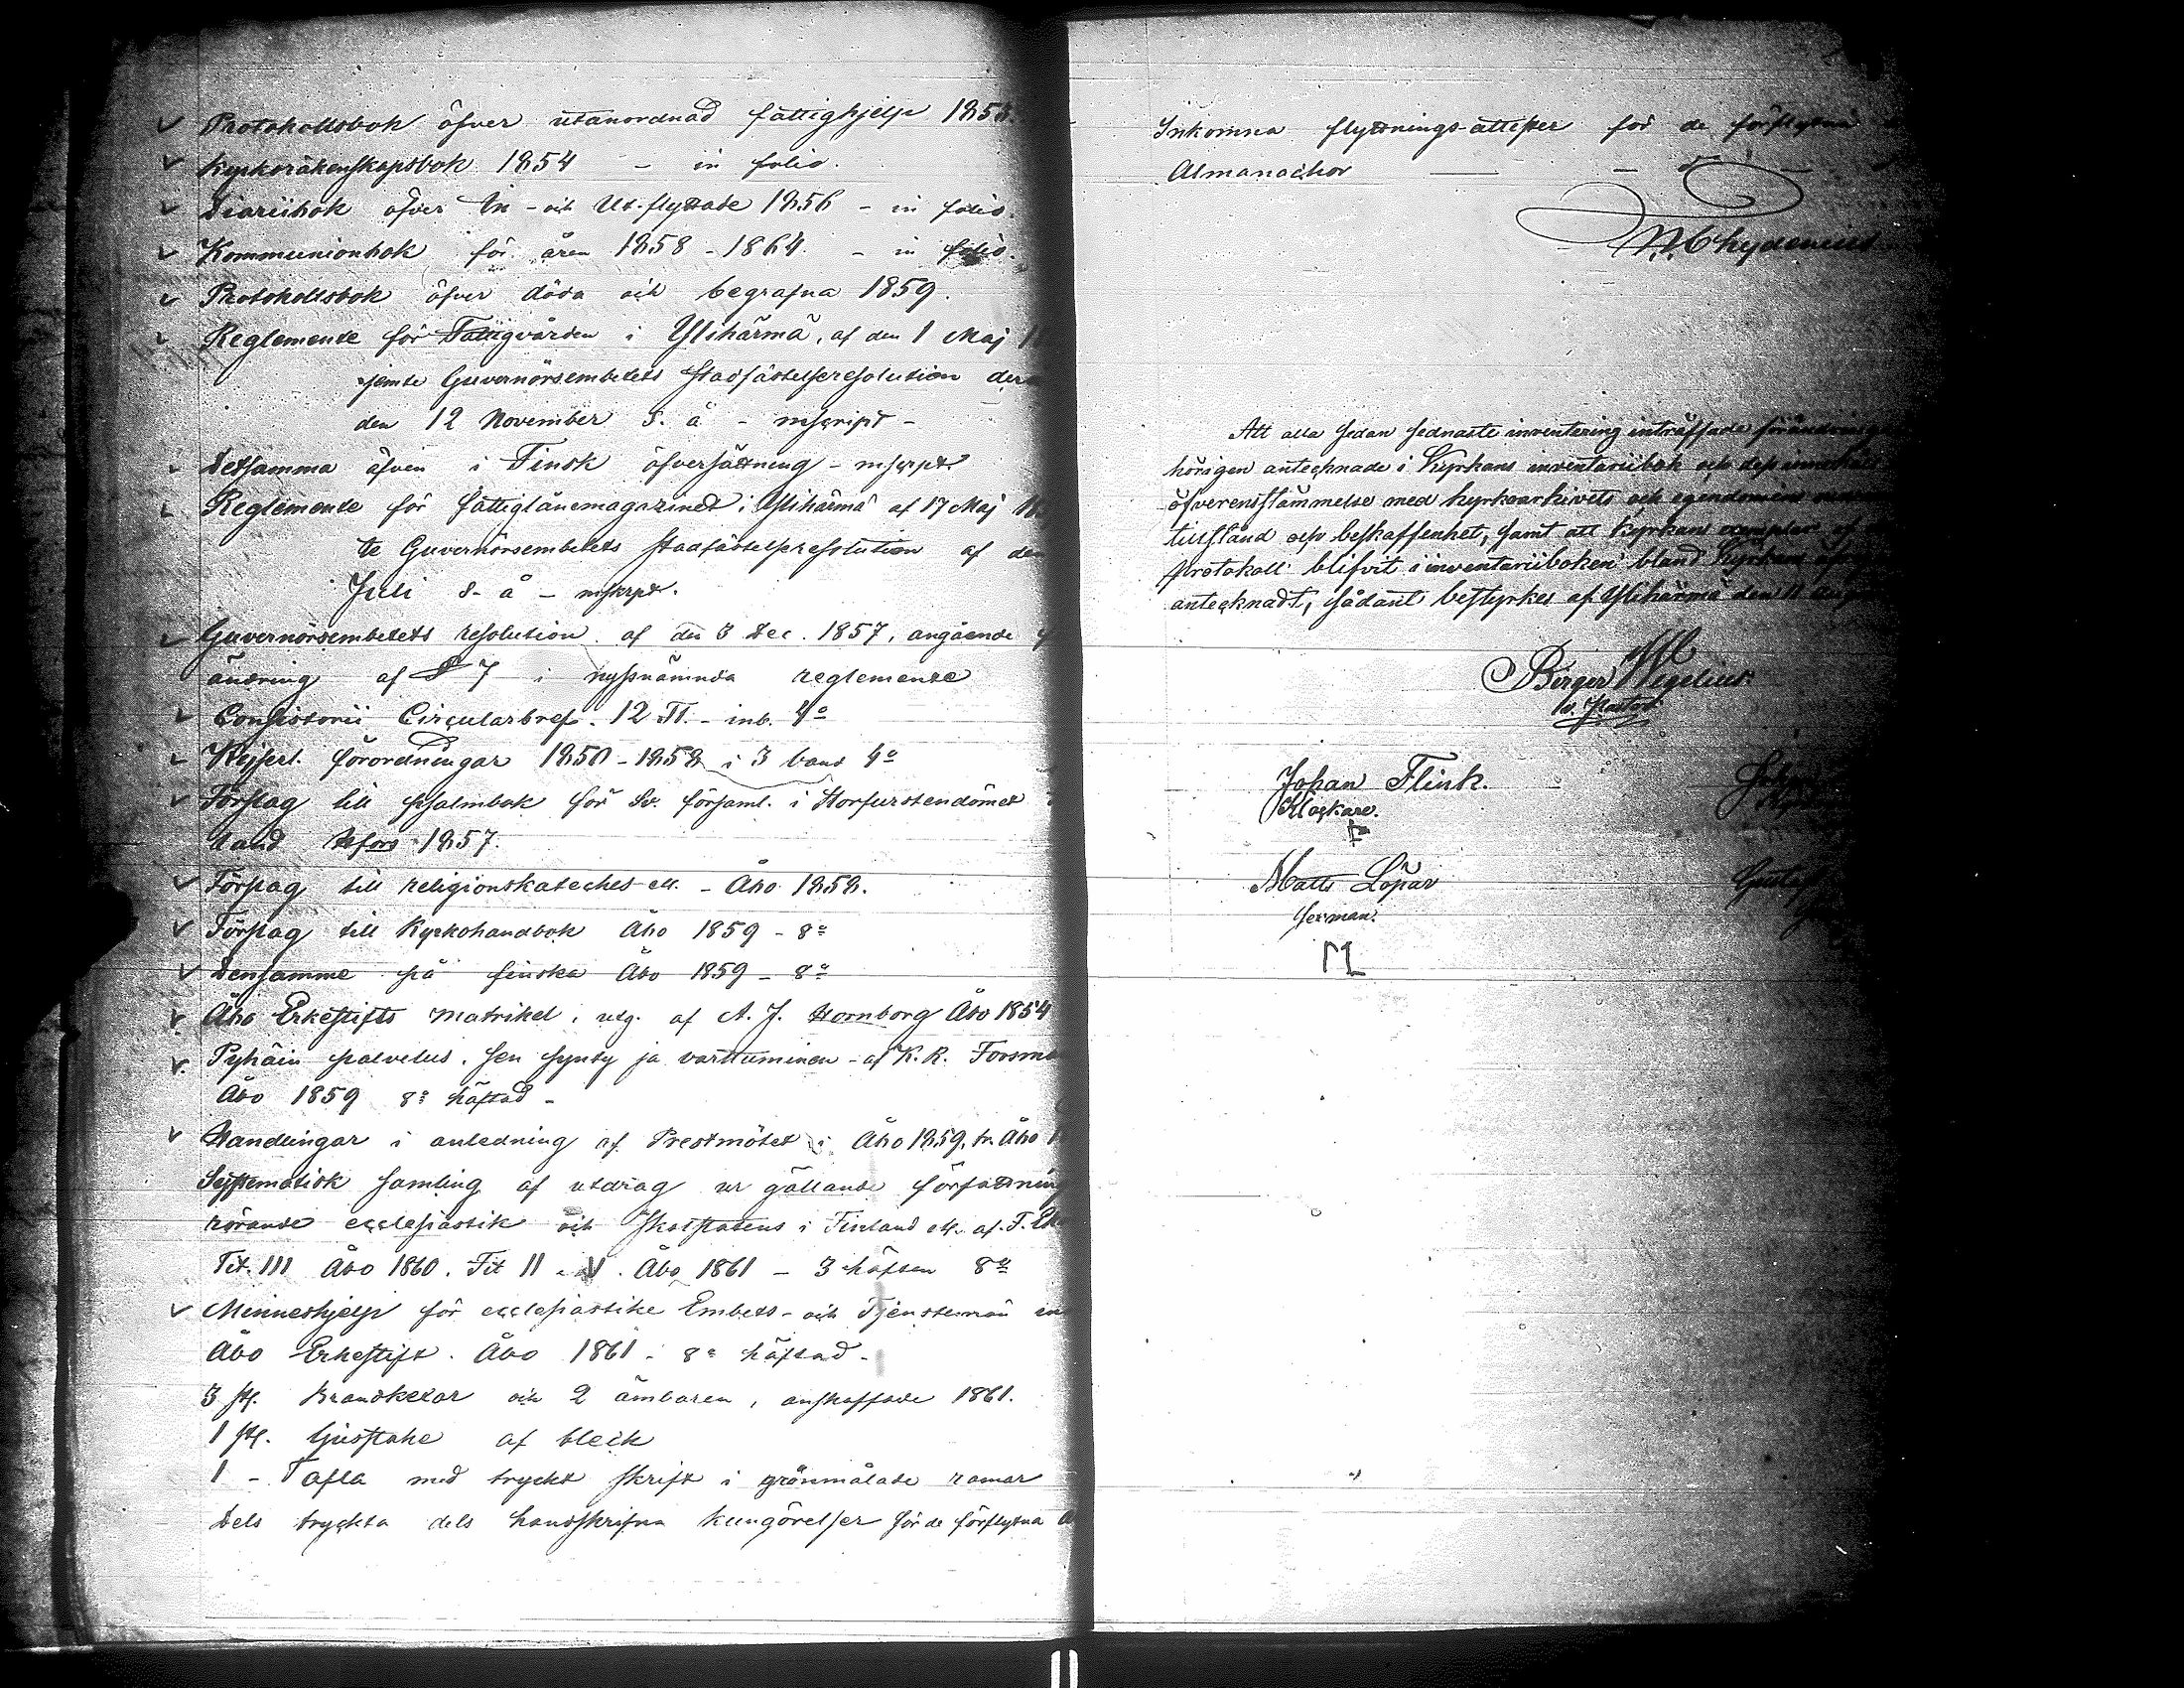 Protokollsbok öfver utanordnad fattighjelp 185
Kyrkoräkenskapsbok 1854 - in folio.
Diariibok öfver In- och Ut-flyttade 1856 - in folio.
Kommunionbok för åren 1858-1864 - in folio.
Protokollsbok öfver döda och begrafna 1859.
Reglemente för Fattigvården i Ylihärmä, af den 1 Maj 1
jemte Guvernörsembetets stadfästelseresolution der
den 12 November s. å - mscript -
Detsamma äfven i Finsk öfversättning - mscrpt
Reglemente för fattiglånemagazinet i Ylihärmä af 17 Maj 18
te Guvernörsembetets stadfästelseresolution af den
Juli s. å - mskrpt.
Guvernörsembetets resolution af den 3 Dec. 1857, angående
ändring af § 7 i nyssnämnda reglemente
Consistorii Circulärbref. 12 Tl. - inb. 4o
Kejserl. förordningar 1850-1858 i 3 band 4o
Förslag till psalmbok för Sv. församl. i Storfurstendömet
land Hfors 1857.
Förslag till religionskateches etc. - Åbo 1858.
Förslag till Kyrkohandbok Åbo 1859 - 8o
Densamme på finska Åbo 1859 - 8o
Åbo Erkestifts Matrikel, utg. af A. J. Hornborg Åbo 1854
Pyhäin palvelus, sen synty ja varttuminen - af K. R. Forsma
Åbo 1859 8o häftad -
Handlingar i anledning af Prestmötet i Åbo 1859, tr. Åbo 1
Systematisk samling af utdrag ur gällande författning
rörande ecclesiastik och skolstatens i Finland etc. af F.
Tit. III Åbo 1860. Tit II Åbo 1861 - 3 häften 8o
Minneshjelp för ecclesiastike Embets- och Tjenstemän in
Åbo Erkestift. Åbo 1861 - 8o häftad -
3 st. Brandkexar och 2 ämbaren, anskaffade 1861.
1 st. ljusstake af bleck
1 - Tafla med tryckt skrift i grönmålade ramar
Dels tryckta dels handskrifna kungörelser för de förflytna
Inkomna flyttnings-attester för de förflytna
Almanachor - d:o -
Chydenius
Att alla sedan sednaste inventering inträffade förändring
hörigen antecknade i Kyrkans inventariibok och dess inneh
öfverensstämmelse med kyrkoarkivets och egendomens
tillstånd och beskaffenhet, samt att Kyrkans exemplar af
protokoll blifvit i inventariiboken bland Kyrkans
antecknadt, sådant bestyrkes af Ylihärmä den 11 Aug
Birger Wegelius
v. Pastor
Johan Flink.
Klockare.
Matts Löpar
sexman.
Gustaf